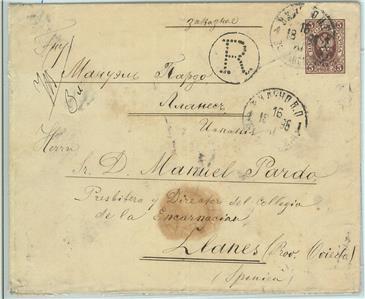 заказное
R
Гну
Мануэль Пардо
Лланесъ
Испанія
Herrn
Sr. D. Manuel Pardo
Presbitero y Director del Collegio
de la Encarnacion
Llanes (Prov. Oviedo)
(Spanien)